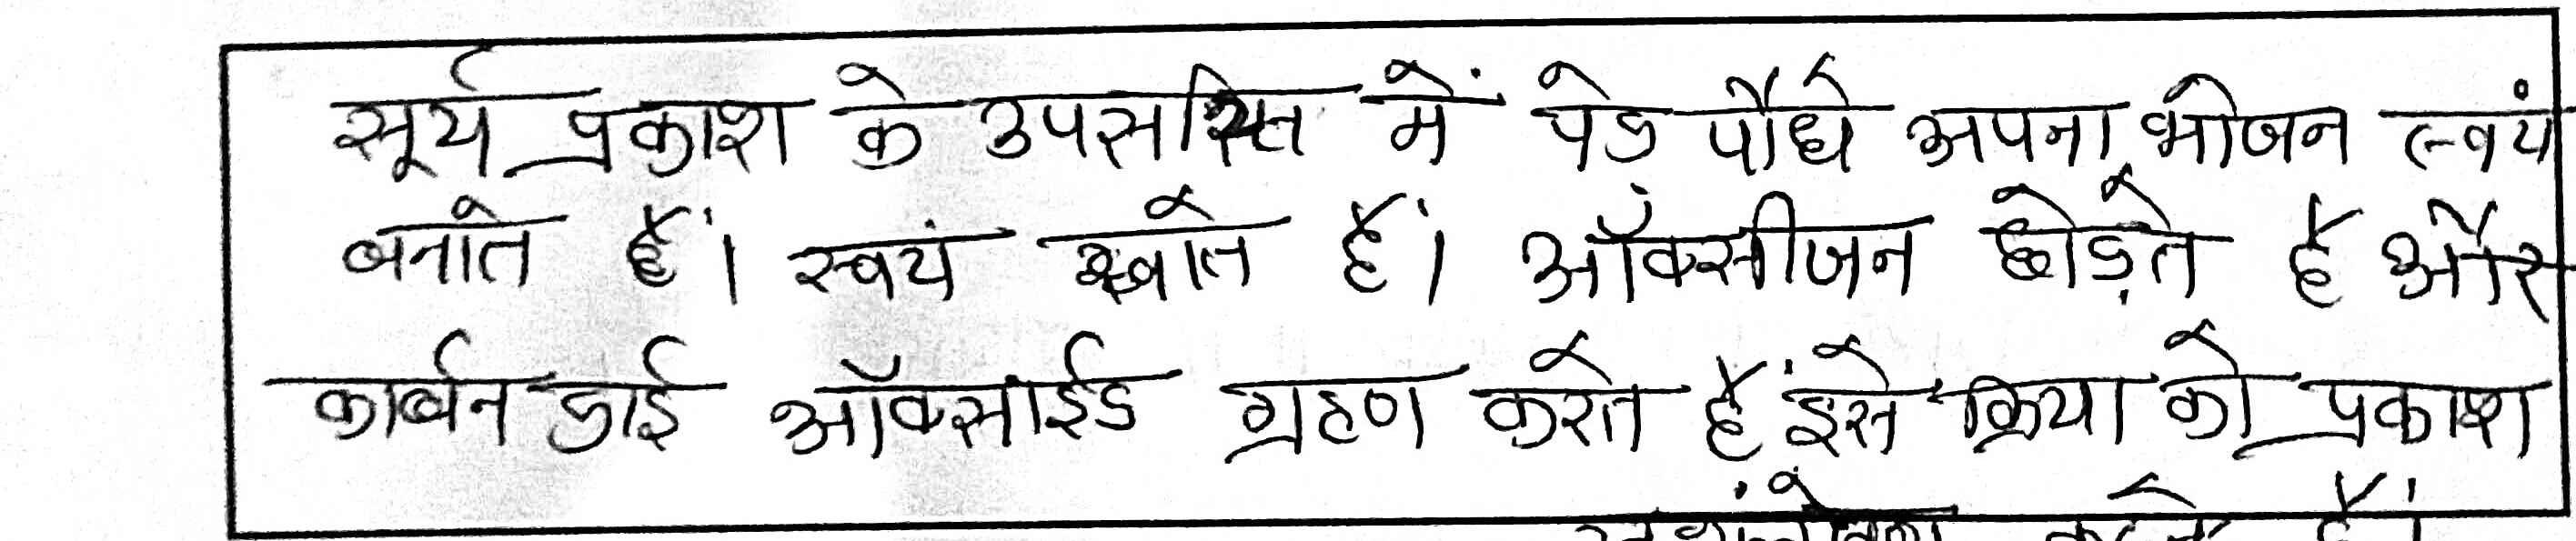 सूर्य प्रकाश के उपसस्ति में पेड पौधे अपना भोजन स्वयं
बनाते हैं। स्वयं खाते हैं। ऑक्सीजन छोड़ते है और
कार्बन डाई ऑक्साईड ग्रहण करते हैं इसे क्रिया को प्रकाश